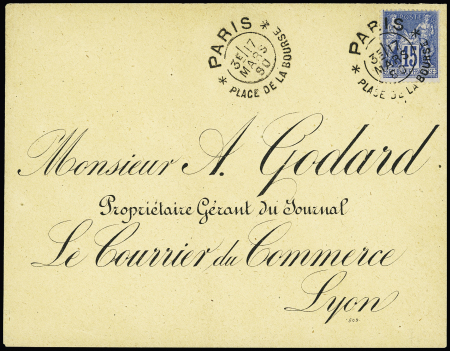 PARIS
3E/17
MARS
80
PLACE DE LA BOURSE
PARIS
PLACE DE LA BOURSE
15
Monsieur A. Godard
Propriétaire Gérant du Journal
Le Courrier du Commerce
Lyon